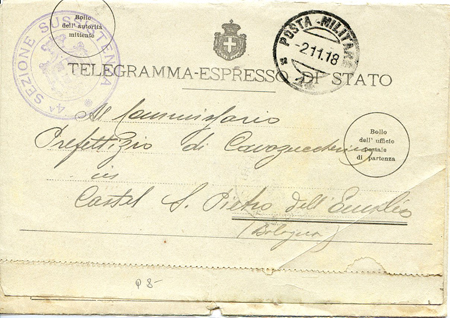 4ª SEZIONE SUSSISTENZA
Bollo
dell'autorità
mittente
POSTA MILITARE
-2.11.18
TELEGRAMMA-ESPRESSO DI STATO
Al Commissario
Prefettizio di
Bollo
dell'uffizio
postale
di partenza
in
Castel S. Pietro dell'Emilia
(Bologna)